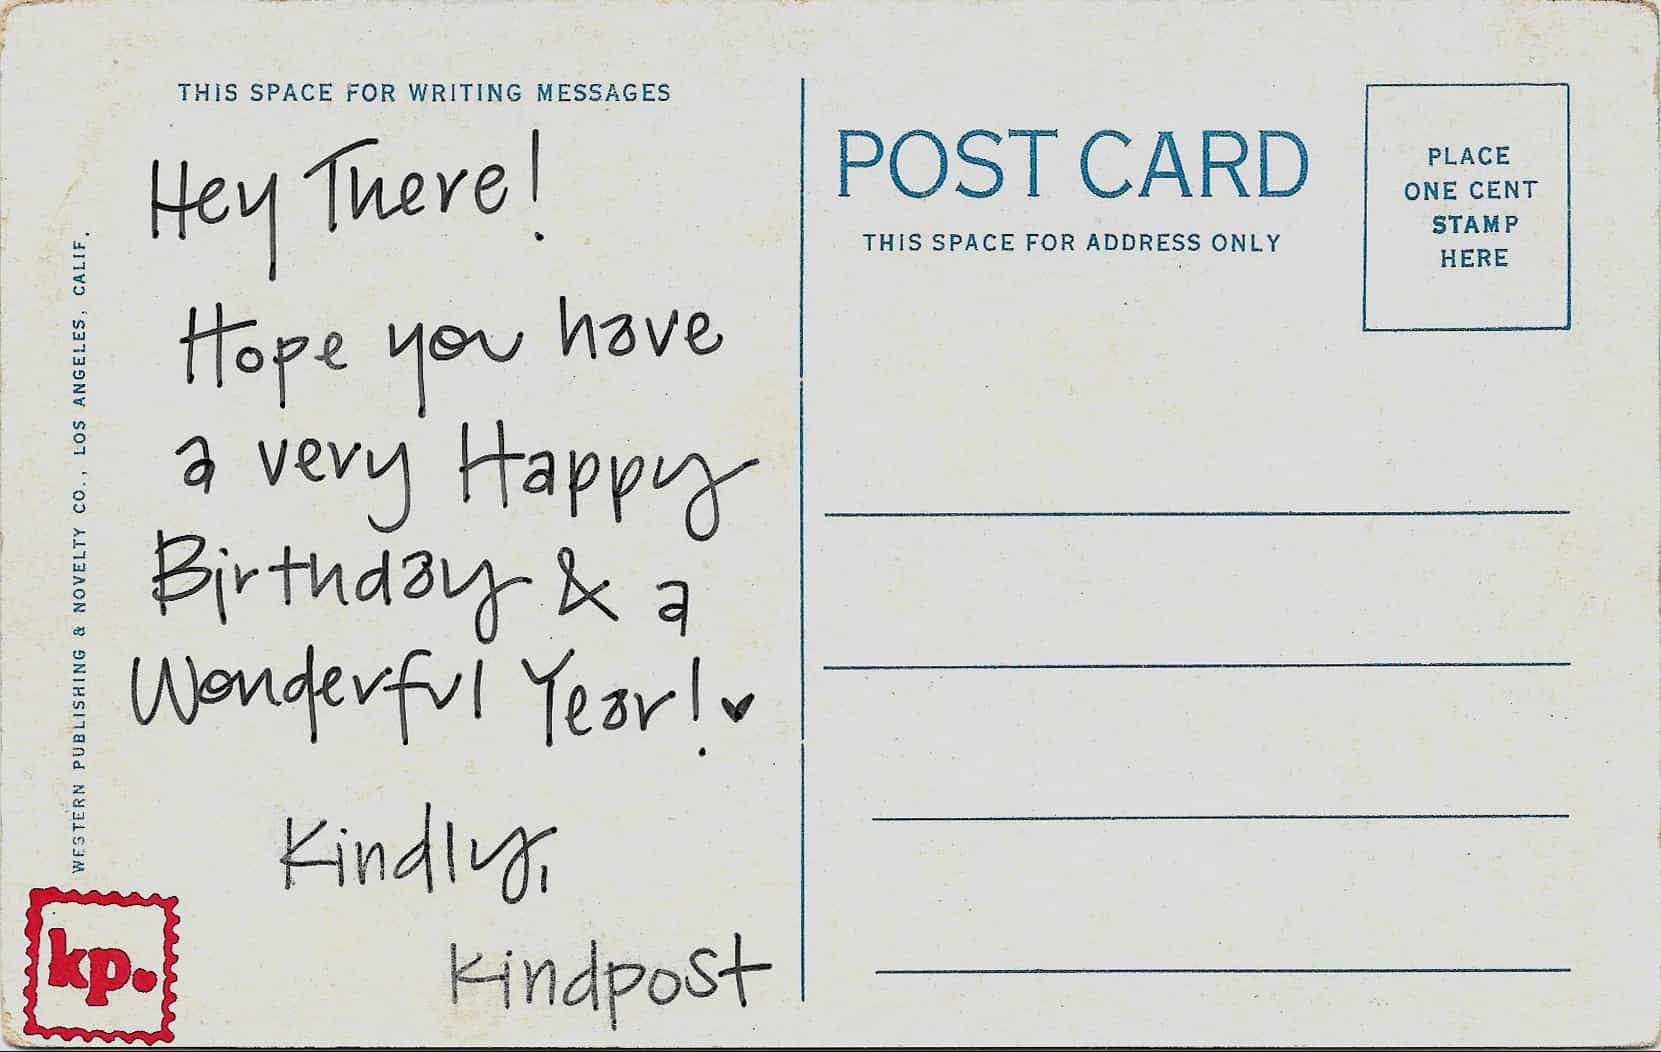 THIS SPACE FOR WRITING MESSAGES
Hey There!
Hope you have
a very Happy
Birthday & a
Wonderful Year!♥
Kindly,
Kindpost
WESTERN PUBLISHING & NOVELTY CO., LOS ANGELES, CALIF.
kp.
POST CARD
THIS SPACE FOR ADDRESS ONLY
PLACE
ONE CENT
STAMP
HERE